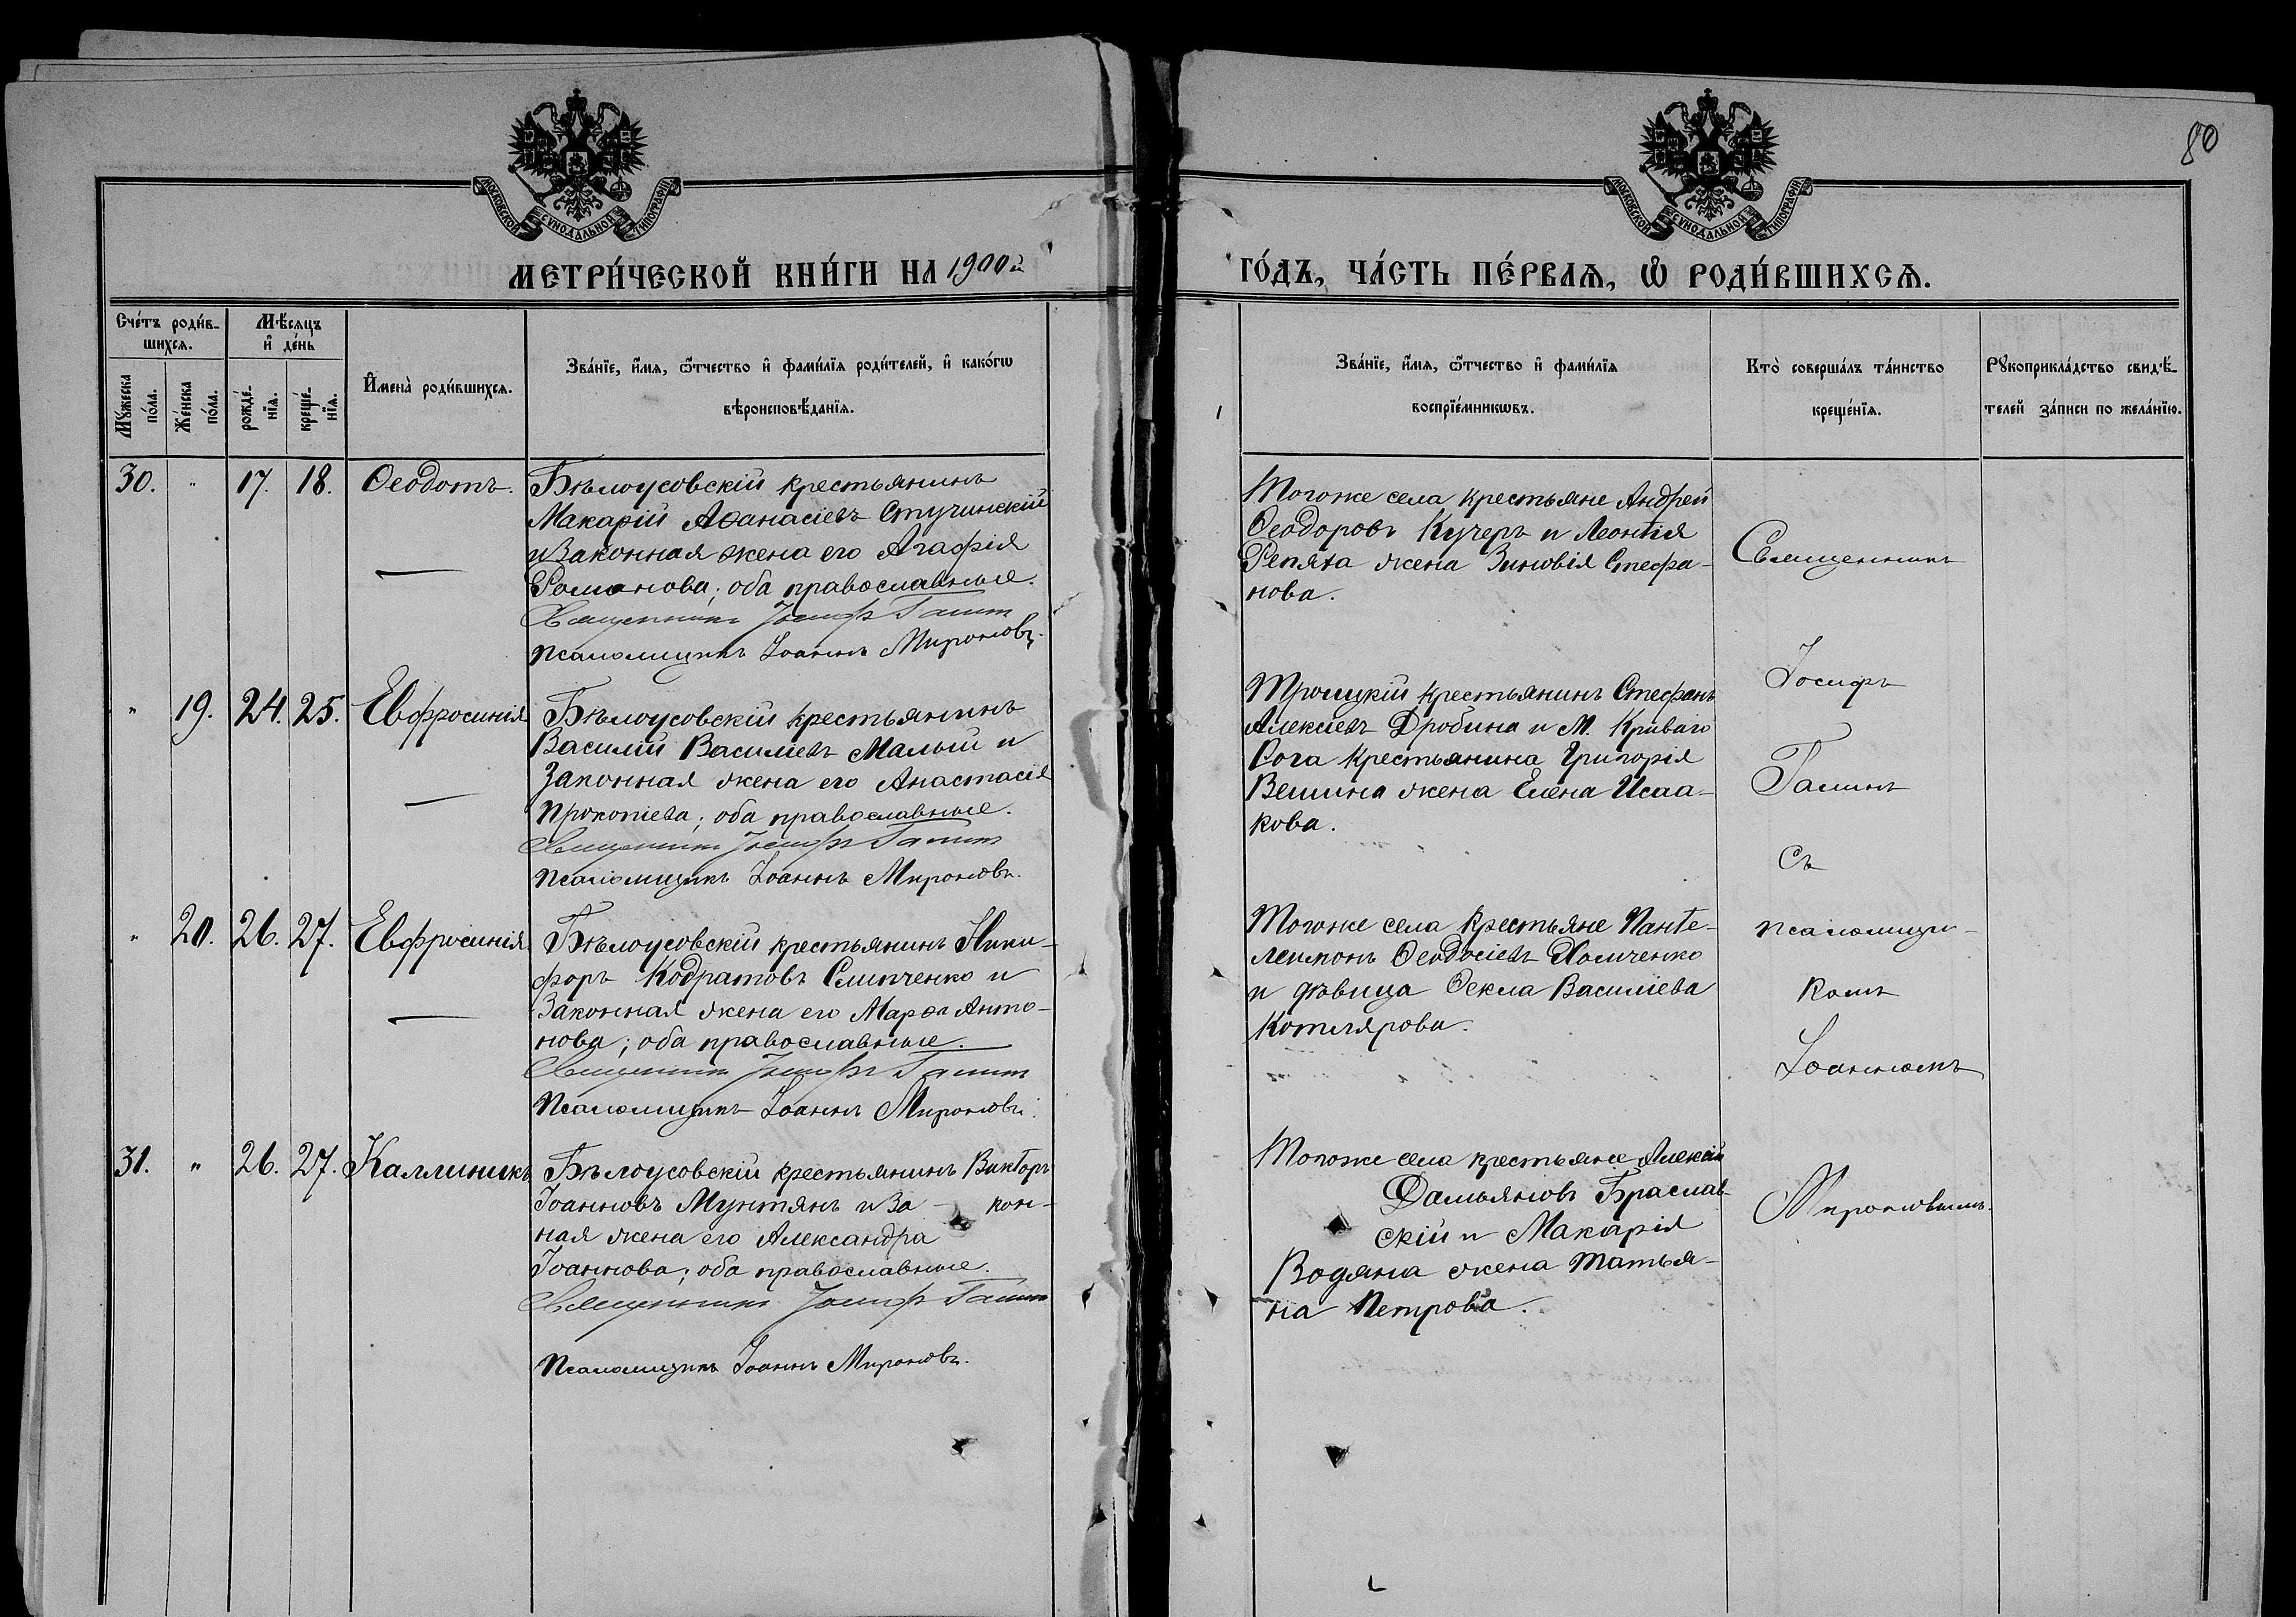 80
МОСКОВСКОЙ СѴНОДАЛЬНОЙ ТИПОГРАФІИ
МОСКОВСКОЙ СѴНОДАЛЬНОЙ ТИПОГРАФІИ
МЕТРИ́ЧЕСКОЙ КНИ́ГИ НА 1900й
ГО́ДЪ, ЧА́СТЬ ПЕ́РВАѦ, Ѡ҆ РОДИ́ВШИХСѦ.
Сче́тъ роди́в-
шихсѧ.
Мѣ́сѧцъ
и҆ де́нь
Мꙋ́жеска
по́ла.
Же́нска
по́ла.
рожде́-
нїѧ.
креще́-
нїѧ.
И҆мена̀ роди́вшихсѧ.
Зва́нїе, и҆́мѧ, ѻ҆́тчество и҆ фами́лїѧ роди́телей, и҆ како́гѡ
вѣроисповѣ́данїѧ.
Зва́нїе, и҆́мѧ, ѻ҆́тчество и҆ фами́лїѧ
воспрїе́мникѡвъ.
Кто̀ соверша́лъ та́инство
креще́нїѧ.
Рꙋкоприкла́дство свидѣ́-
телей за́писи по жела́нїю.
30. " 17. 18. Ѳеодотъ.
Бѣлоусовскій крестьянинъ
Макарій Аѳанасіевъ Стучинскій
и законная жена его Агафія
Романова; оба православные.
Священникъ Іосифъ Галинъ
Псаломщикъ Іоаннъ Мироновъ.
Тогоже села крестьяне Андрей
Ѳеодоровъ Кучеръ и Леонтія
Репяха жена Зиновія Стефа-
нова.
" 19. 24. 25. Евфросинія
Бѣлоусовскій крестьянинъ
Василій Василіевъ Малый и
законная жена его Анастасія
Прокопіева; оба православные.
Священникъ Іосифъ Галинъ
Псаломщикъ Іоаннъ Мироновъ.
Троицкій крестьянинъ Стефанъ
Алексіевъ Дробина и М. Криваго
Рога крестьянина Григорія
жена Елена Исаа-
кова.
" 20. 26. 27. Евфросинія
Бѣлоусовскій крестьянинъ Ники-
форъ Кодратовъ Слипченко и
законная жена его Марѳа Анто-
нова; оба православные.
Священникъ Іосифъ Галинъ
Псаломщикъ Іоаннъ Мироновъ.
Тогоже села крестьяне Панте-
леимонъ Ѳеодосіевъ Хомченко
и дѣвица Ѳекла Василіева
Котлярова.
31. " 26. 27. Каллиникъ
Бѣлоусовскій крестьянинъ Викторъ
Іоанновъ Мунтянъ и за- кон-
ная жена его Александра
Іоаннова; оба православные.
Священникъ Іосифъ Галинъ
Псаломщикъ Іоаннъ Мироновъ.
Тогоже села крестьяне Алексій
Дамьяновъ Браслав-
скій и Макарія
Водяна жена Татья-
на Петрова.
Священникъ
Іосифъ
Галинъ
съ
псаломщи-
комъ
Іоанномъ
Мироновымъ.